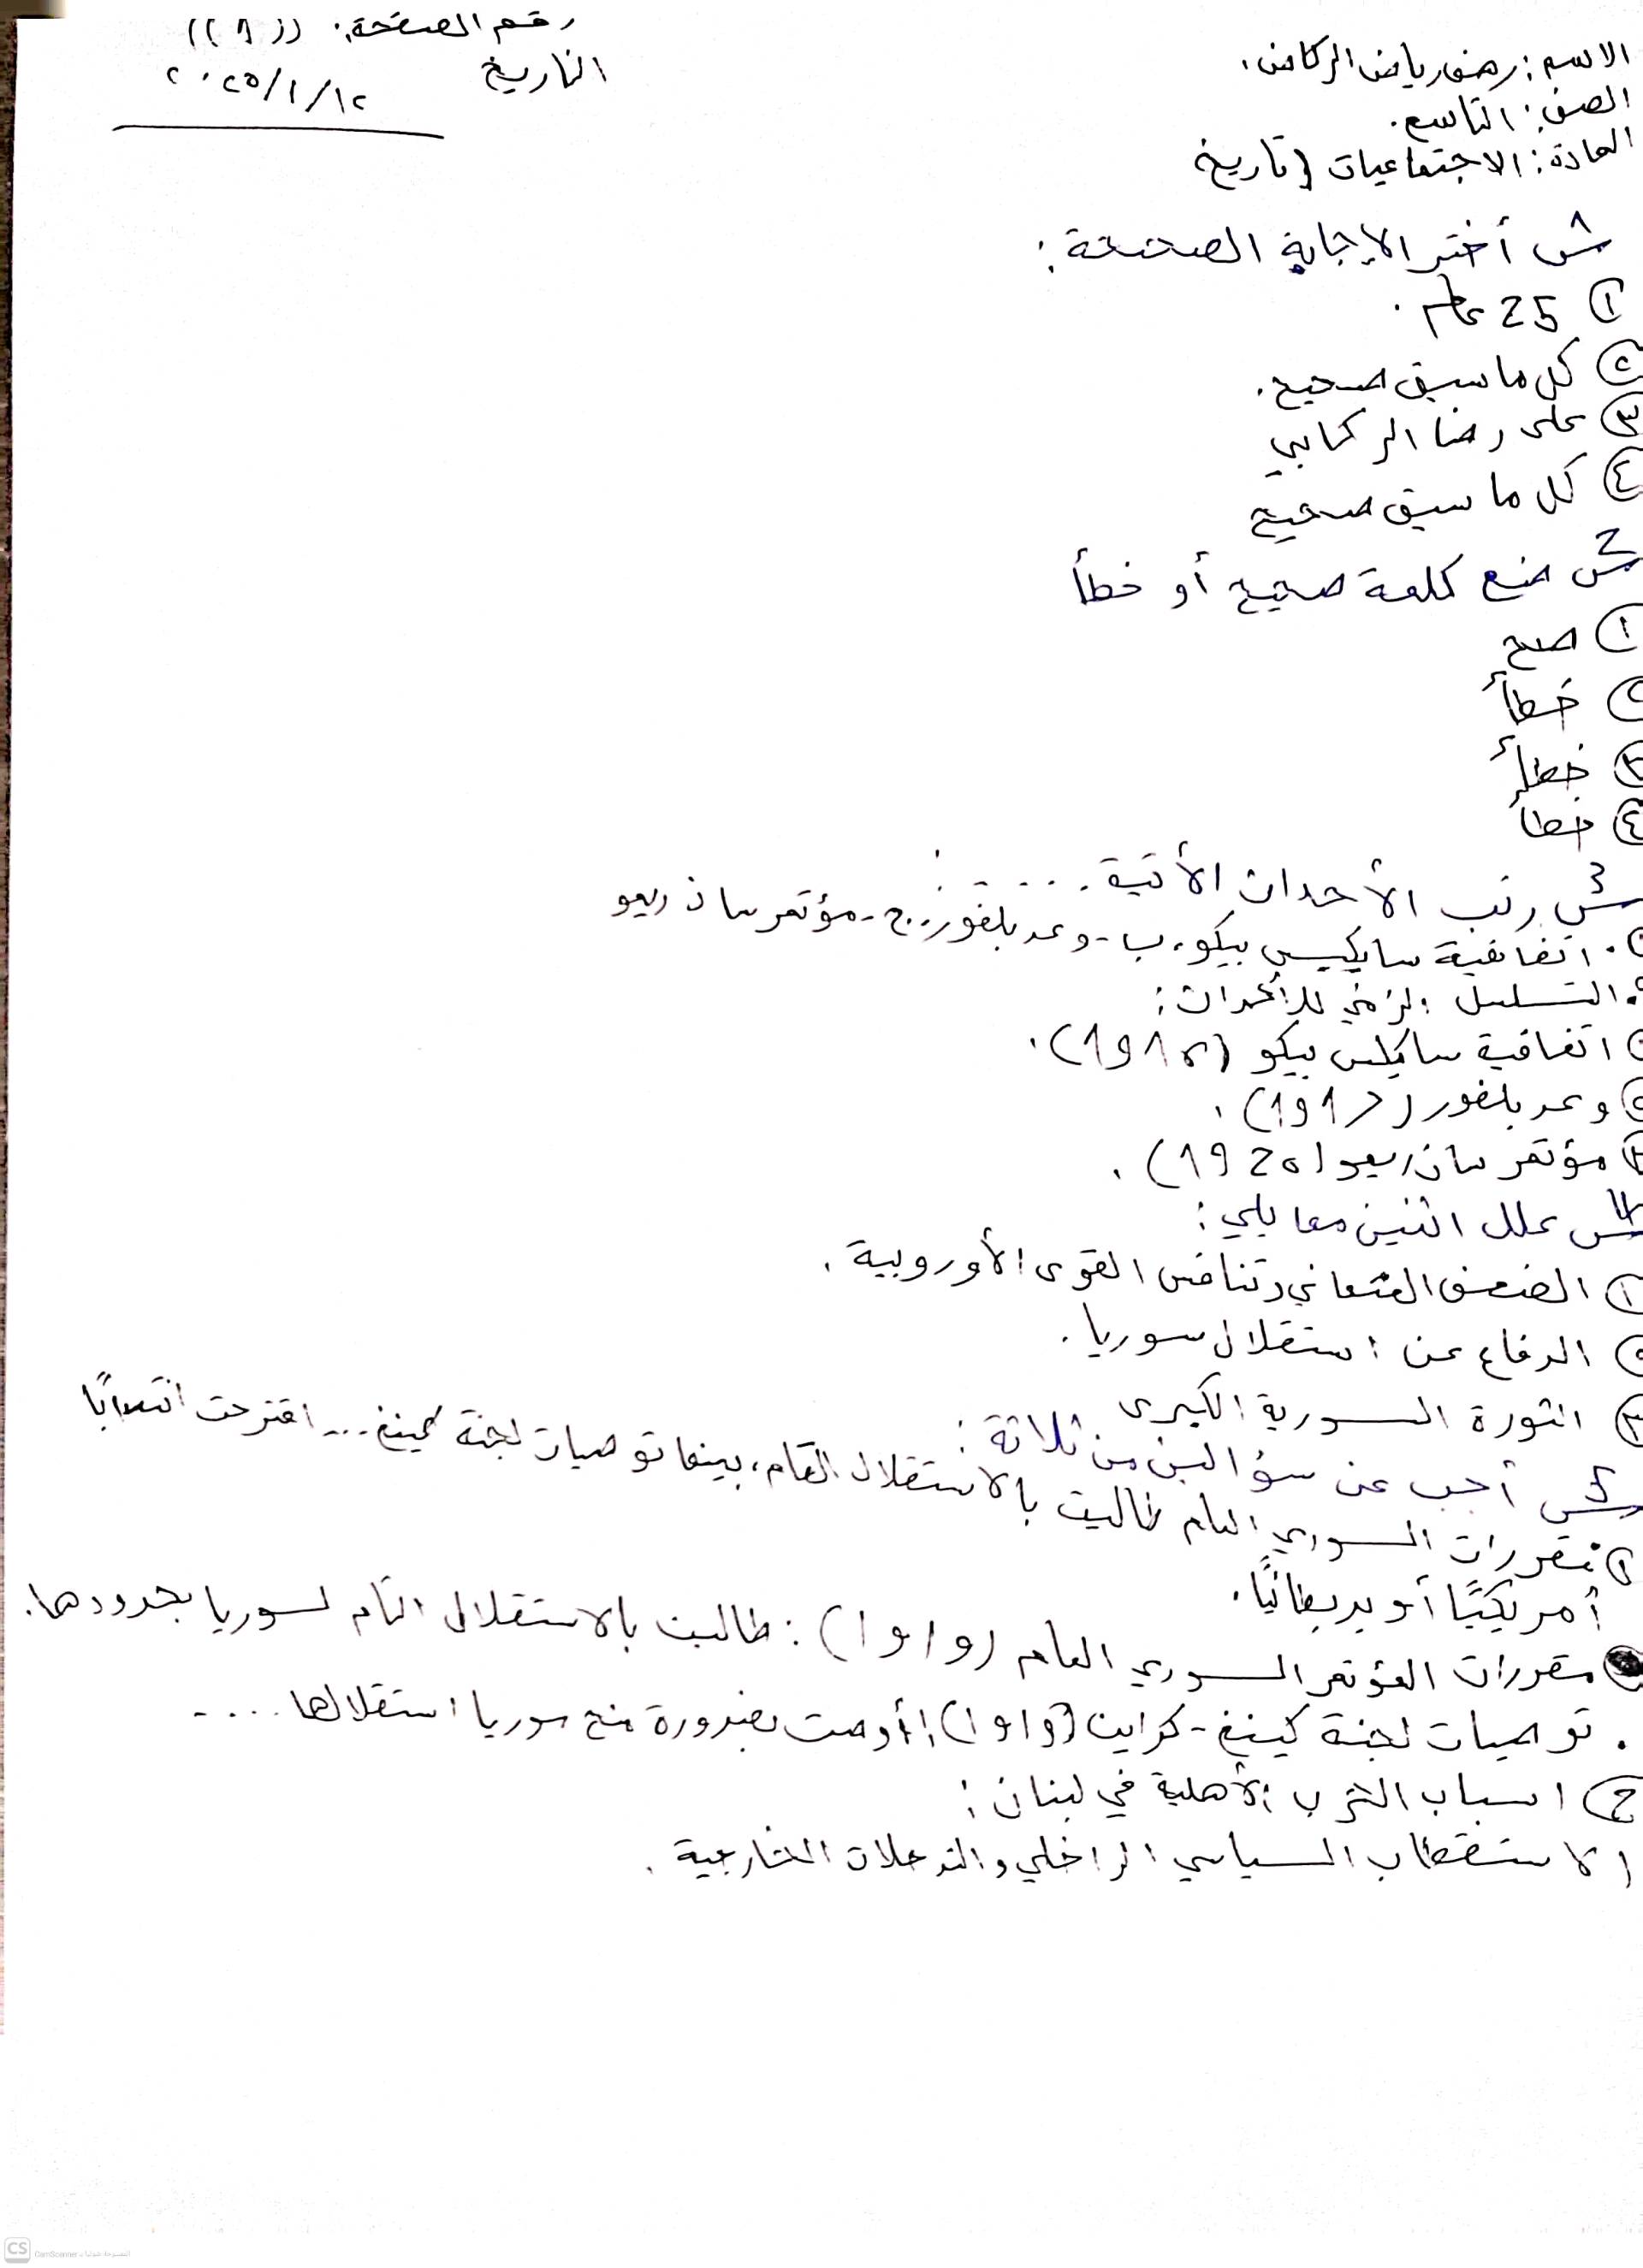 رقم الصفحة: ((١))
التاريخ
٢٠٢٥/١/١٢
الاسم: رهف رياض الركاض.
الصف: التاسع.
المادة: الاجتماعيات (تاريخ
س1 أختر الإجابة الصحيحة:
① 25 عام.
② كل ما سبق صحيح.
③ على رضا الركابي
④ كل ما سبق صحيح
س2 ضع كلمة صحيح أو خطأ
① صح
② خطأ
③ خطأ
④ خطأ
س3 رتب الأحداث الأتية . . . . :
اتفاقية سايكيس بيكو، ب-وعد بلفور. ج-مؤتمر سان ريمو
• التسلسل الزمني للأحداث:
① اتفاقية سايكس بيكو (1916).
② وعد بلفور (1917).
③ مؤتمر سان ريمو (1920).
س4 علل اثنين مما يلي:
① الضعف العثماني وتنافس القوى الأوروبية.
② الدفاع عن استقلال سوريا.
③ الثورة السورية الكبرى
س5 أجب عن سؤالين من ثلاثة:
① مقررات السوري العام طالبت بالاستقلال التام، بينما توصيات لجنة كينغ... اقترحت انتدابًا
أمريكيًا أو بريطانيًا.
مقررات المؤتمر السوري العام (١٩١٩): طالبت بالاستقلال التام لسوريا بحدودها.
• توصيات لجنة كينغ-كراين (١٩١٩): أوصت بضرورة منح سوريا استقلالها ....
② اسباب الحرب الأهلية في لبنان:
الاستقطاب السياسي الداخلي والتدخلات الخارجية.
CS
CamScanner